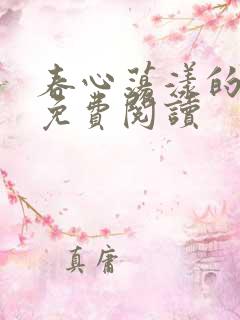 春心荡漾的
免費閱讀
真庸